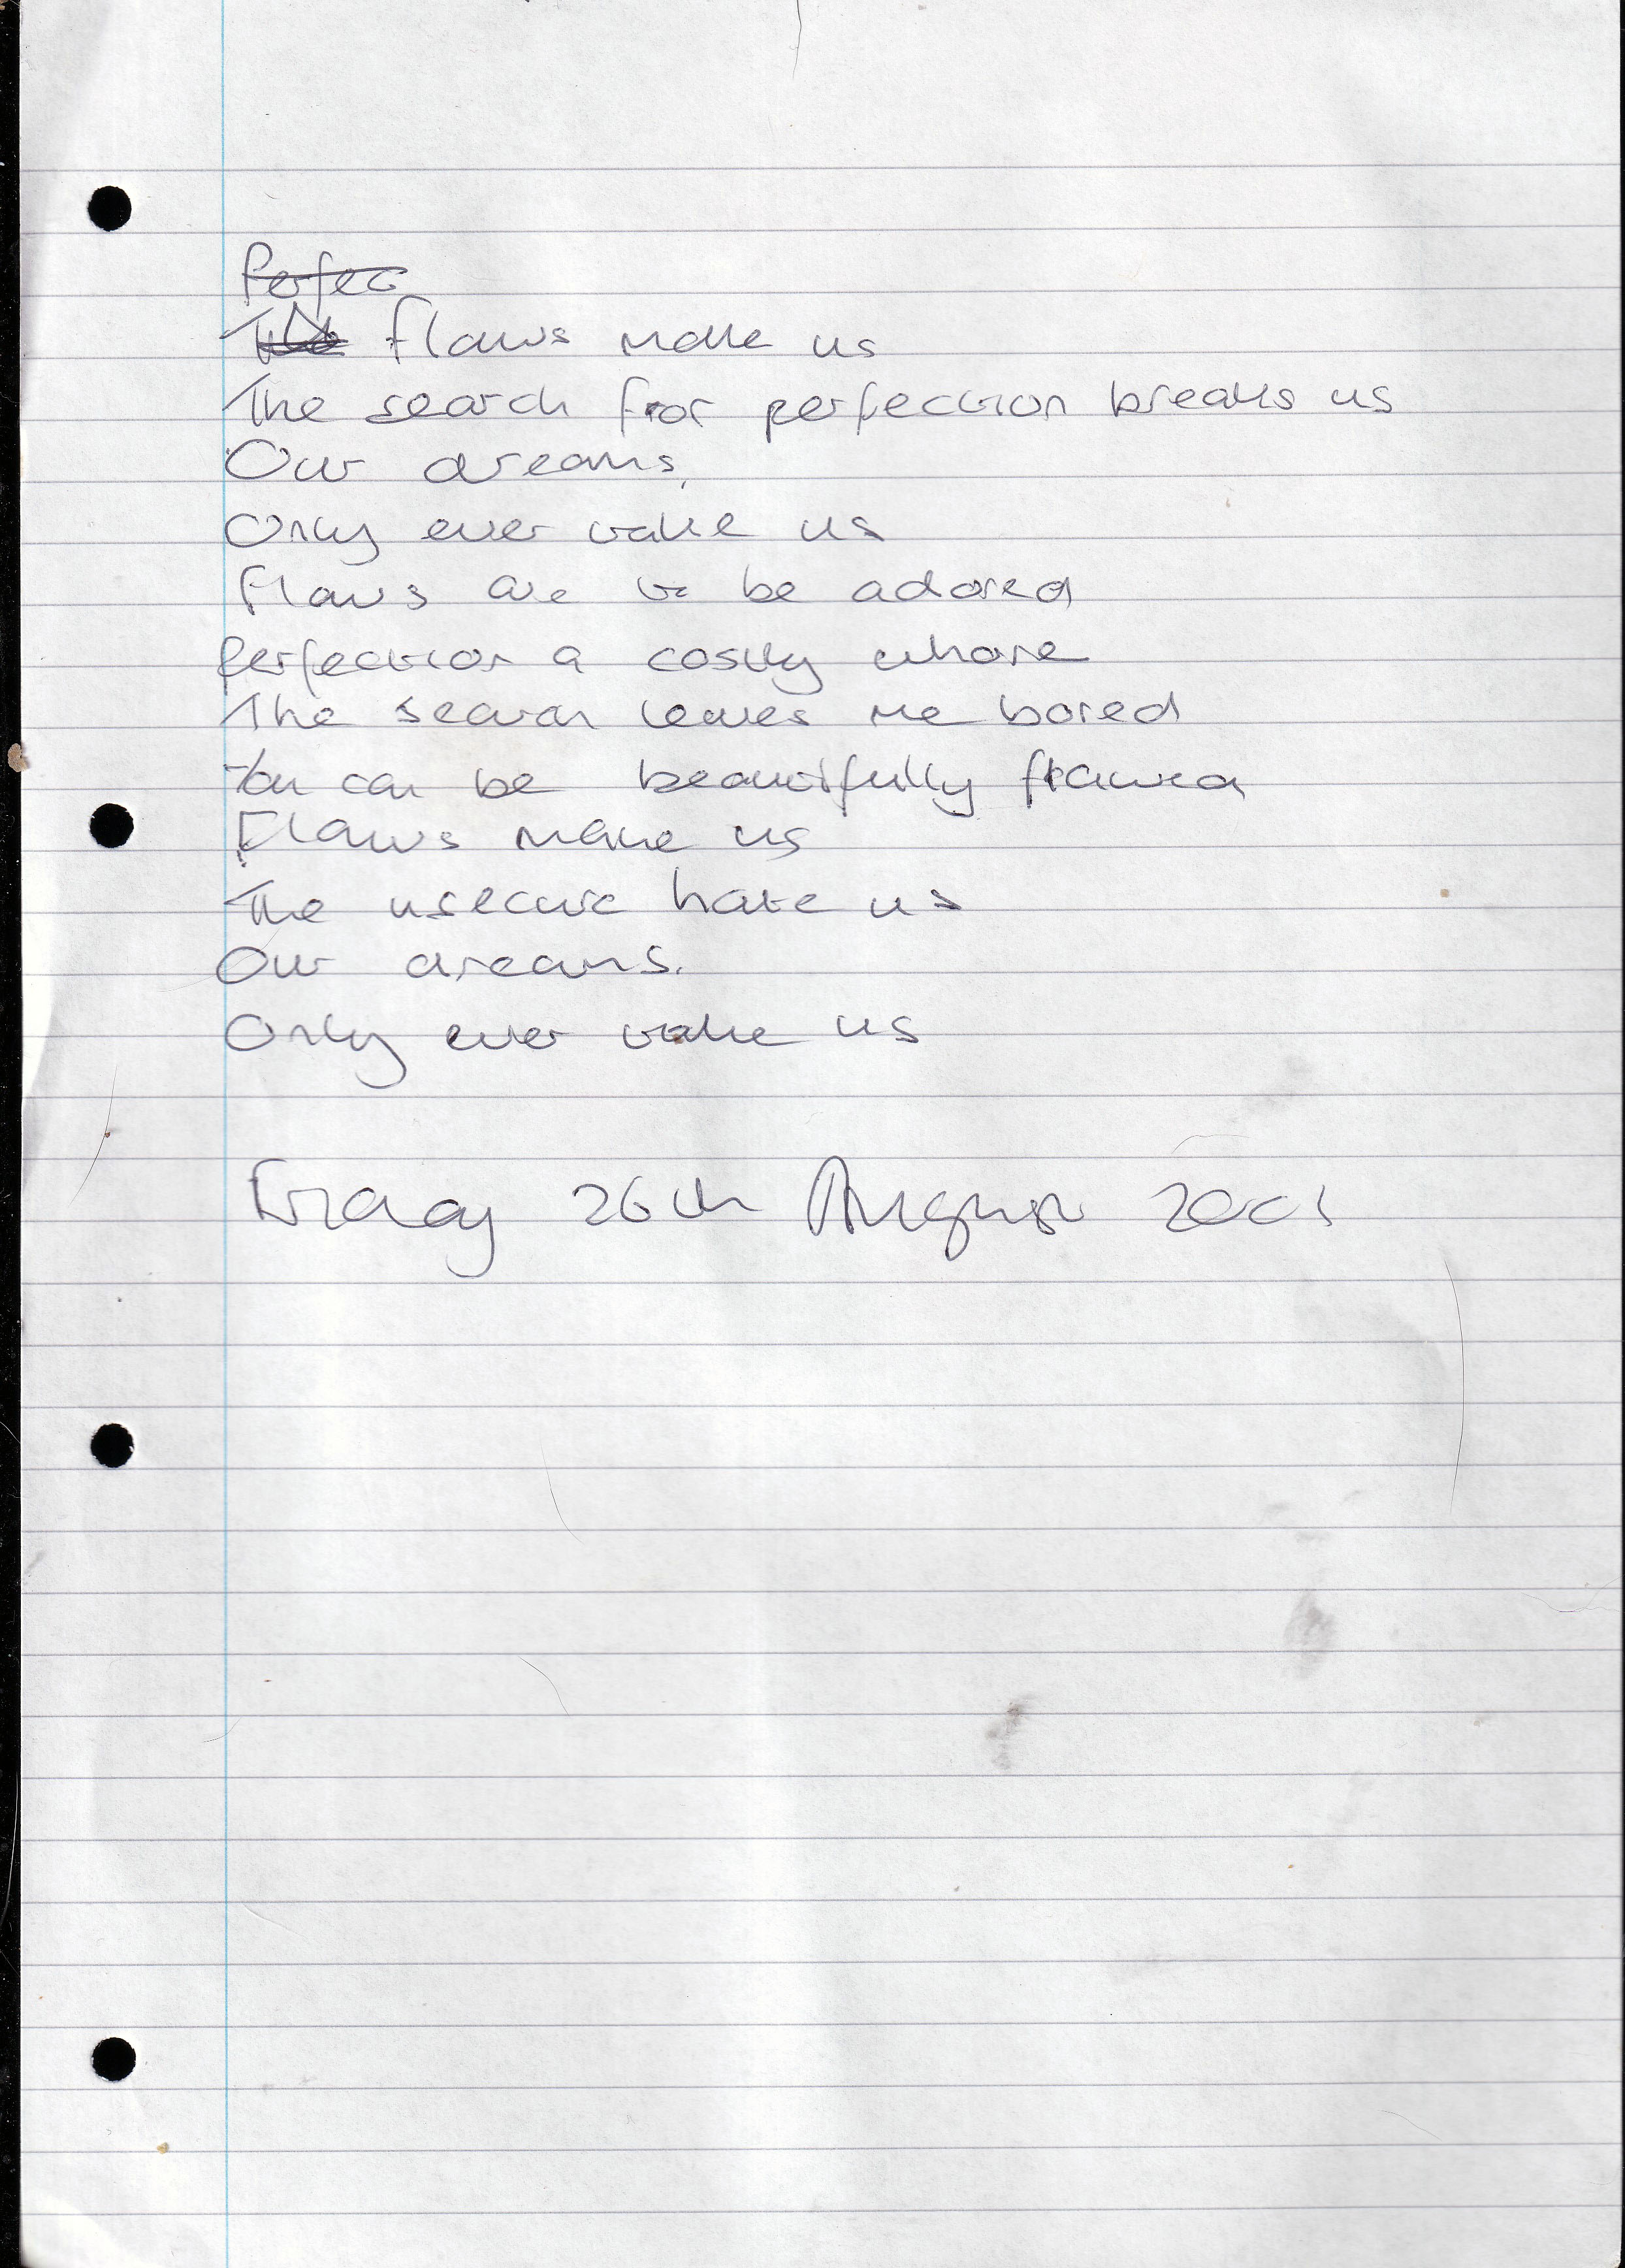 Perfec
The flaws make us
The search for perfection breaks us
Our dreams,
Only ever take us
Flaws are to be adored
Perfection a costly whore
The search leaves me bored
You can be beautifully flawed
Flaws make us
The insecure hate us
Our dreams.
Only ever take us
Friday 26th August